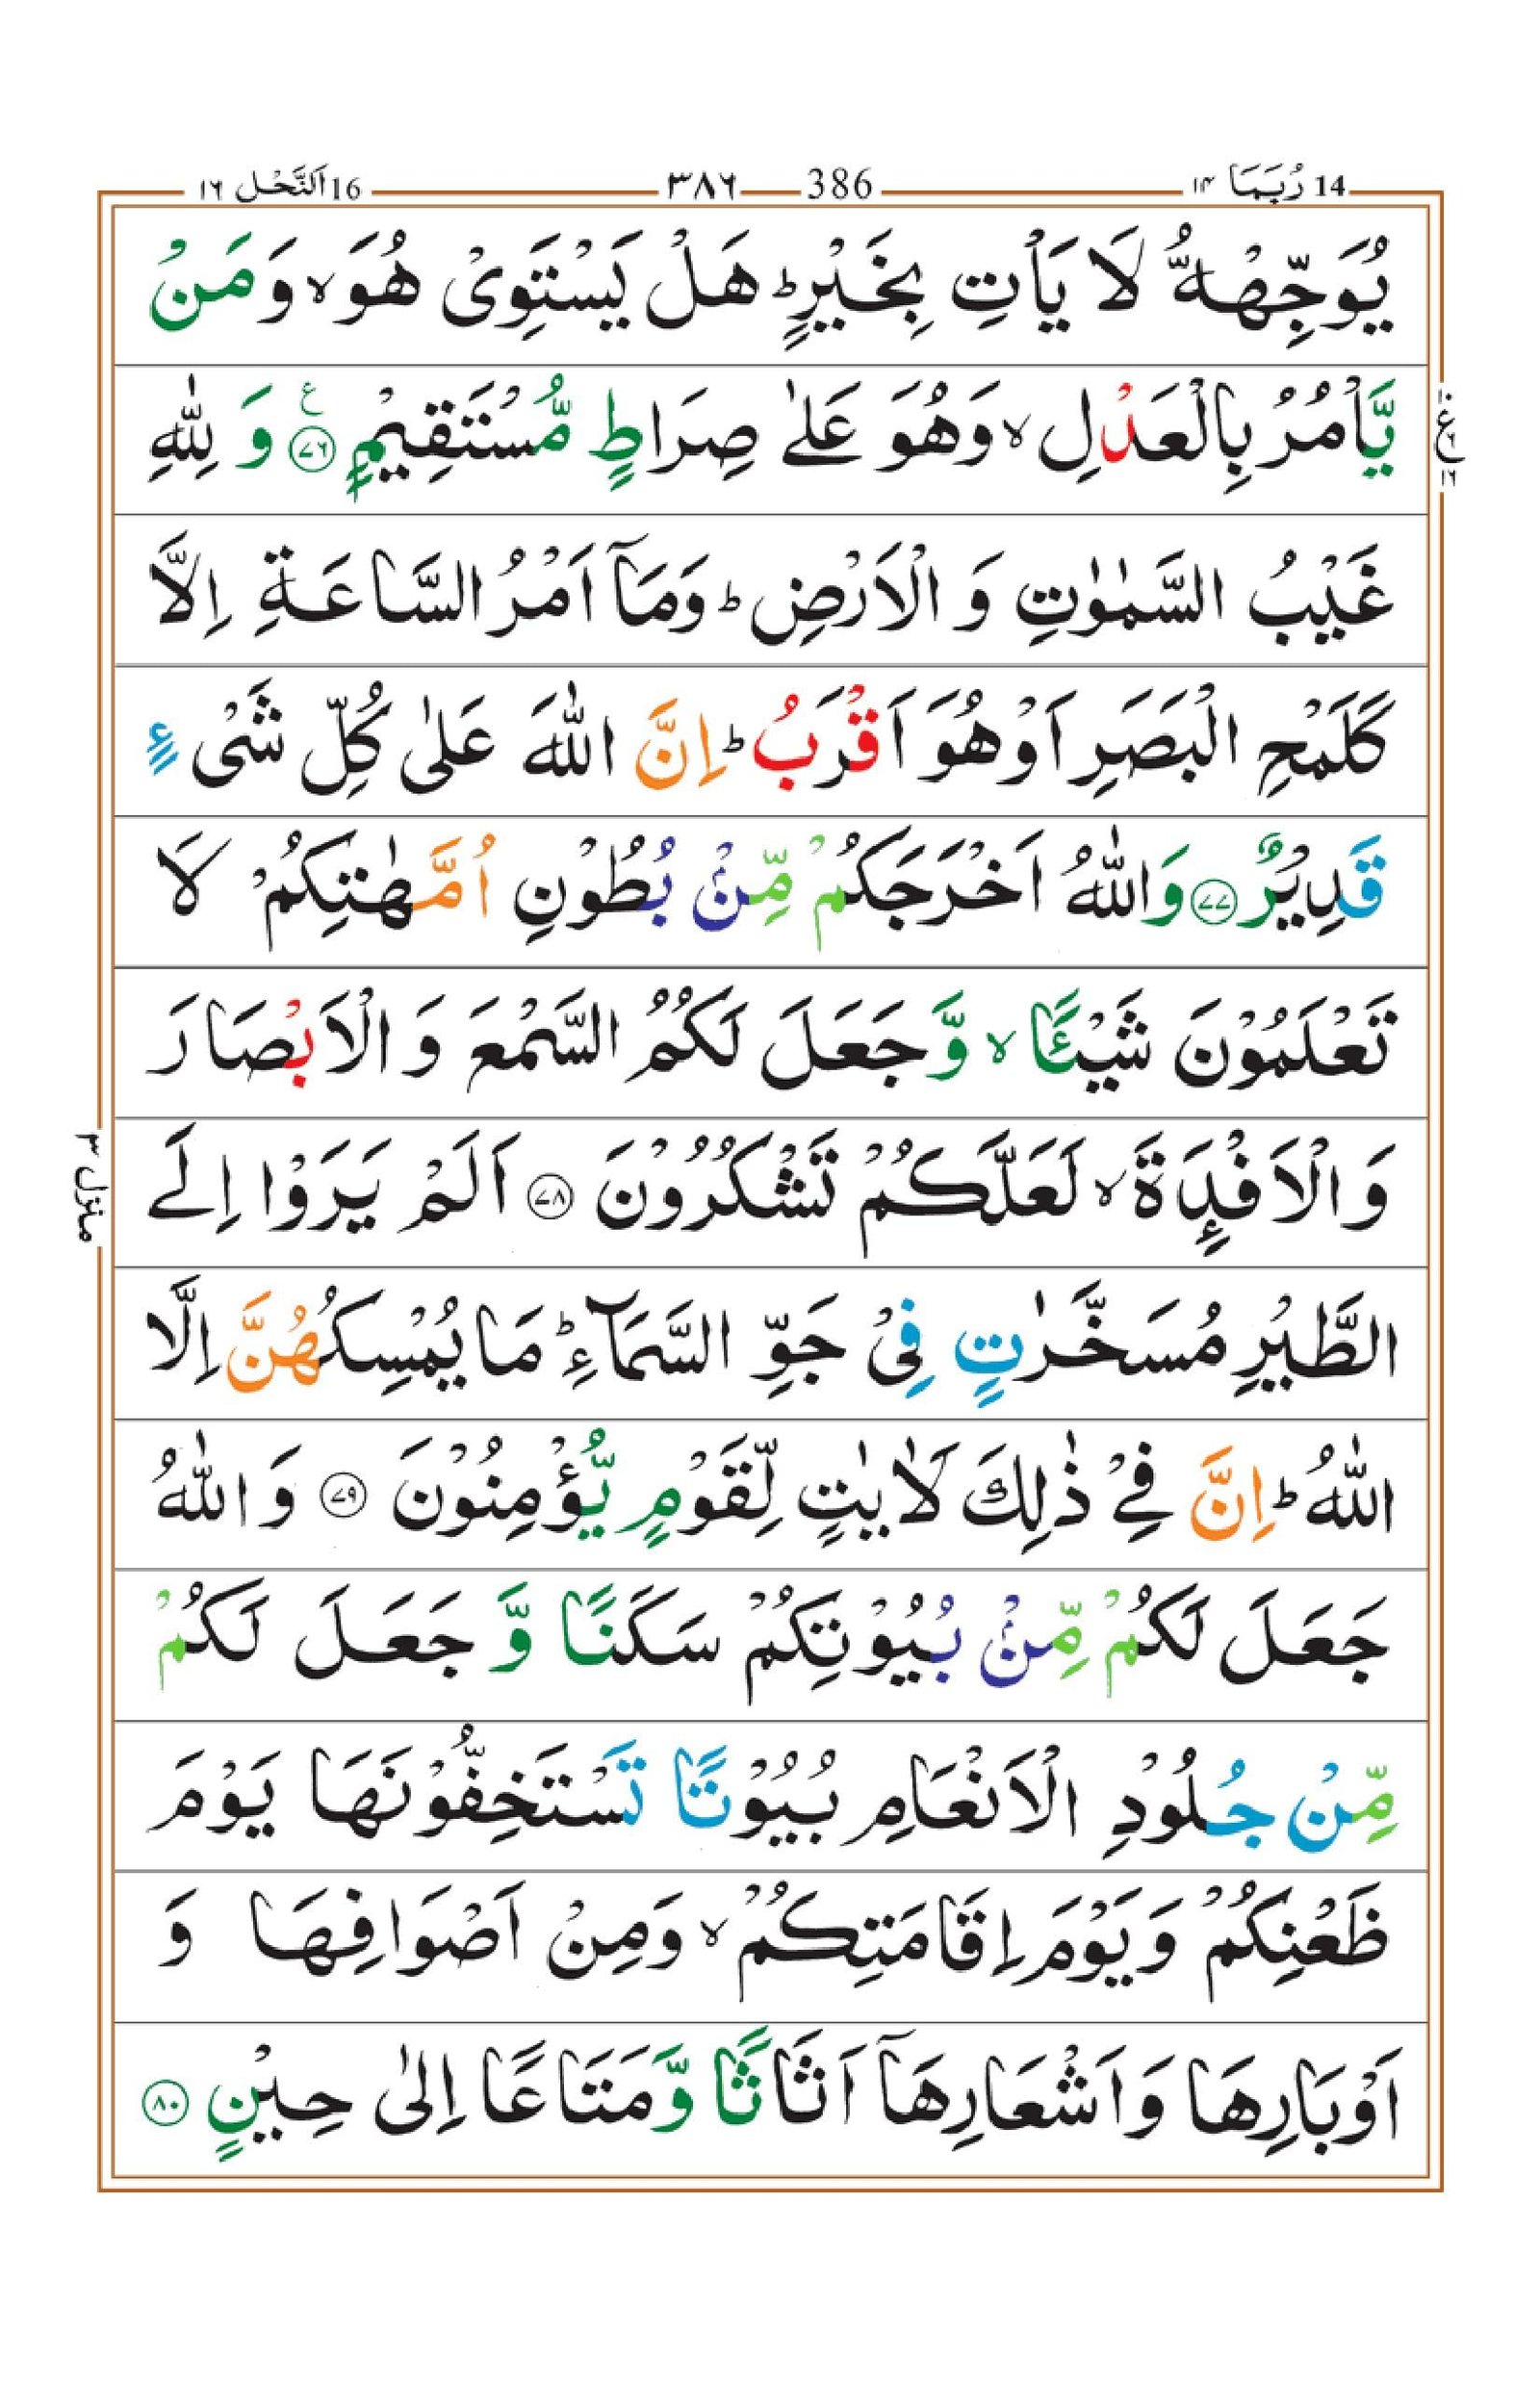 14 رُبَمَا ۱۴ 386 ۳۸۶ 16 اَلنَّحْل ۱۶
يُوَجِّهْهُّ لَا يَاْتِ بِخَيْرٍ ؕ هَلْ يَسْتَوِىْ هُوَ ۙ وَمَنْ
يَّاْمُرُ بِالْعَدْلِ ۙ وَهُوَ عَلٰى صِرَاطٍ مُّسْتَقِيْمٍ ﴿۷۶﴾ ع وَ لِلّٰهِ
ع ۱۶
غَيْبُ السَّمٰوٰتِ وَ الْاَرْضِ ؕ وَمَاۤ اَمْرُ السَّاعَةِ اِلَّا
كَلَمْحِ الْبَصَرِ اَوْ هُوَ اَقْرَبُ ؕ اِنَّ اللّٰهَ عَلٰى كُلِّ شَىْءٍ
قَدِيْرٌ ﴿۷۷﴾ وَاللّٰهُ اَخْرَجَكُمْ مِّنْۢ بُطُوْنِ اُمَّهٰتِكُمْ لَا
تَعْلَمُوْنَ شَيْـًٔا ۙ وَّ جَعَلَ لَكُمُ السَّمْعَ وَ الْاَبْصَارَ
وَ الْاَفْـِٕدَةَ ۙ لَعَلَّكُمْ تَشْكُرُوْنَ ﴿۷۸﴾ اَلَمْ يَرَوْا اِلَى
منزل ۳
الطَّيْرِ مُسَخَّرٰتٍ فِىْ جَوِّ السَّمَآءِ ؕ مَا يُمْسِكُهُنَّ اِلَّا
اللّٰهُ ؕ اِنَّ فِىْ ذٰلِكَ لَاٰيٰتٍ لِّقَوْمٍ يُّؤْمِنُوْنَ ﴿۷۹﴾ وَ اللّٰهُ
جَعَلَ لَكُمْ مِّنْۢ بُيُوْتِكُمْ سَكَنًا وَّ جَعَلَ لَكُمْ
مِّنْ جُلُوْدِ الْاَنْعَامِ بُيُوْتًا تَسْتَخِفُّوْنَهَا يَوْمَ
ظَعْنِكُمْ وَ يَوْمَ اِقَامَتِكُمْ ۙ وَمِنْ اَصْوَافِهَا وَ
اَوْبَارِهَا وَ اَشْعَارِهَاۤ اَثَاثًا وَّ مَتَاعًا اِلٰى حِيْنٍ ﴿۸۰﴾